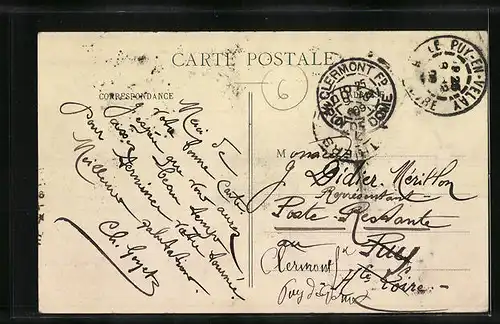 CARTE POSTALE
CORRESPONDANCE
Merci de
votre bonne Carte.
J'espère que vous aurez
beau temps
pour terminer votre tournée.
Meilleures salutations.
CLERMONT-Fd
PUY-DE-DOME
LE PUY-EN-VELAY
6
J. Didier-Mérillon
Représentant
Poste Restante
au Puy
Hte Loire
Clermont Fd
Puy de Dôme